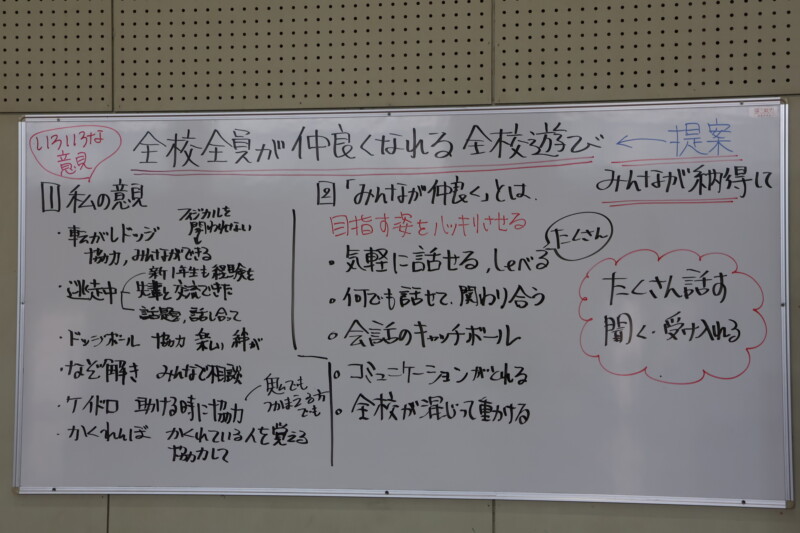 いろいろな
意見
全校全員が仲良くなれる全校遊び ← 提案
みんなが納得して
1 私の意見
・転がしドッジ
フィジカルを
問われない
協力,みんなができる
・逃走中
新1年生も経験を
先輩と交流できた
話題,話し合って
・ドッジボール 協力 楽しい 絆が
・なぞ解き みんなで相談
・ケイドロ 助ける時に協力
でも
・かくれんぼ かくれている人を覚える
協力して
2 「みんなが仲良く」とは.
目指す姿をハッキリさせる
・気軽に話せる,しゃべる
たくさん
・何でも話せて、関わり合う
・会話のキャッチボール
・コミュニケーションがとれる
・全校が混じって動かける
たくさん話す
聞く・受け入れる